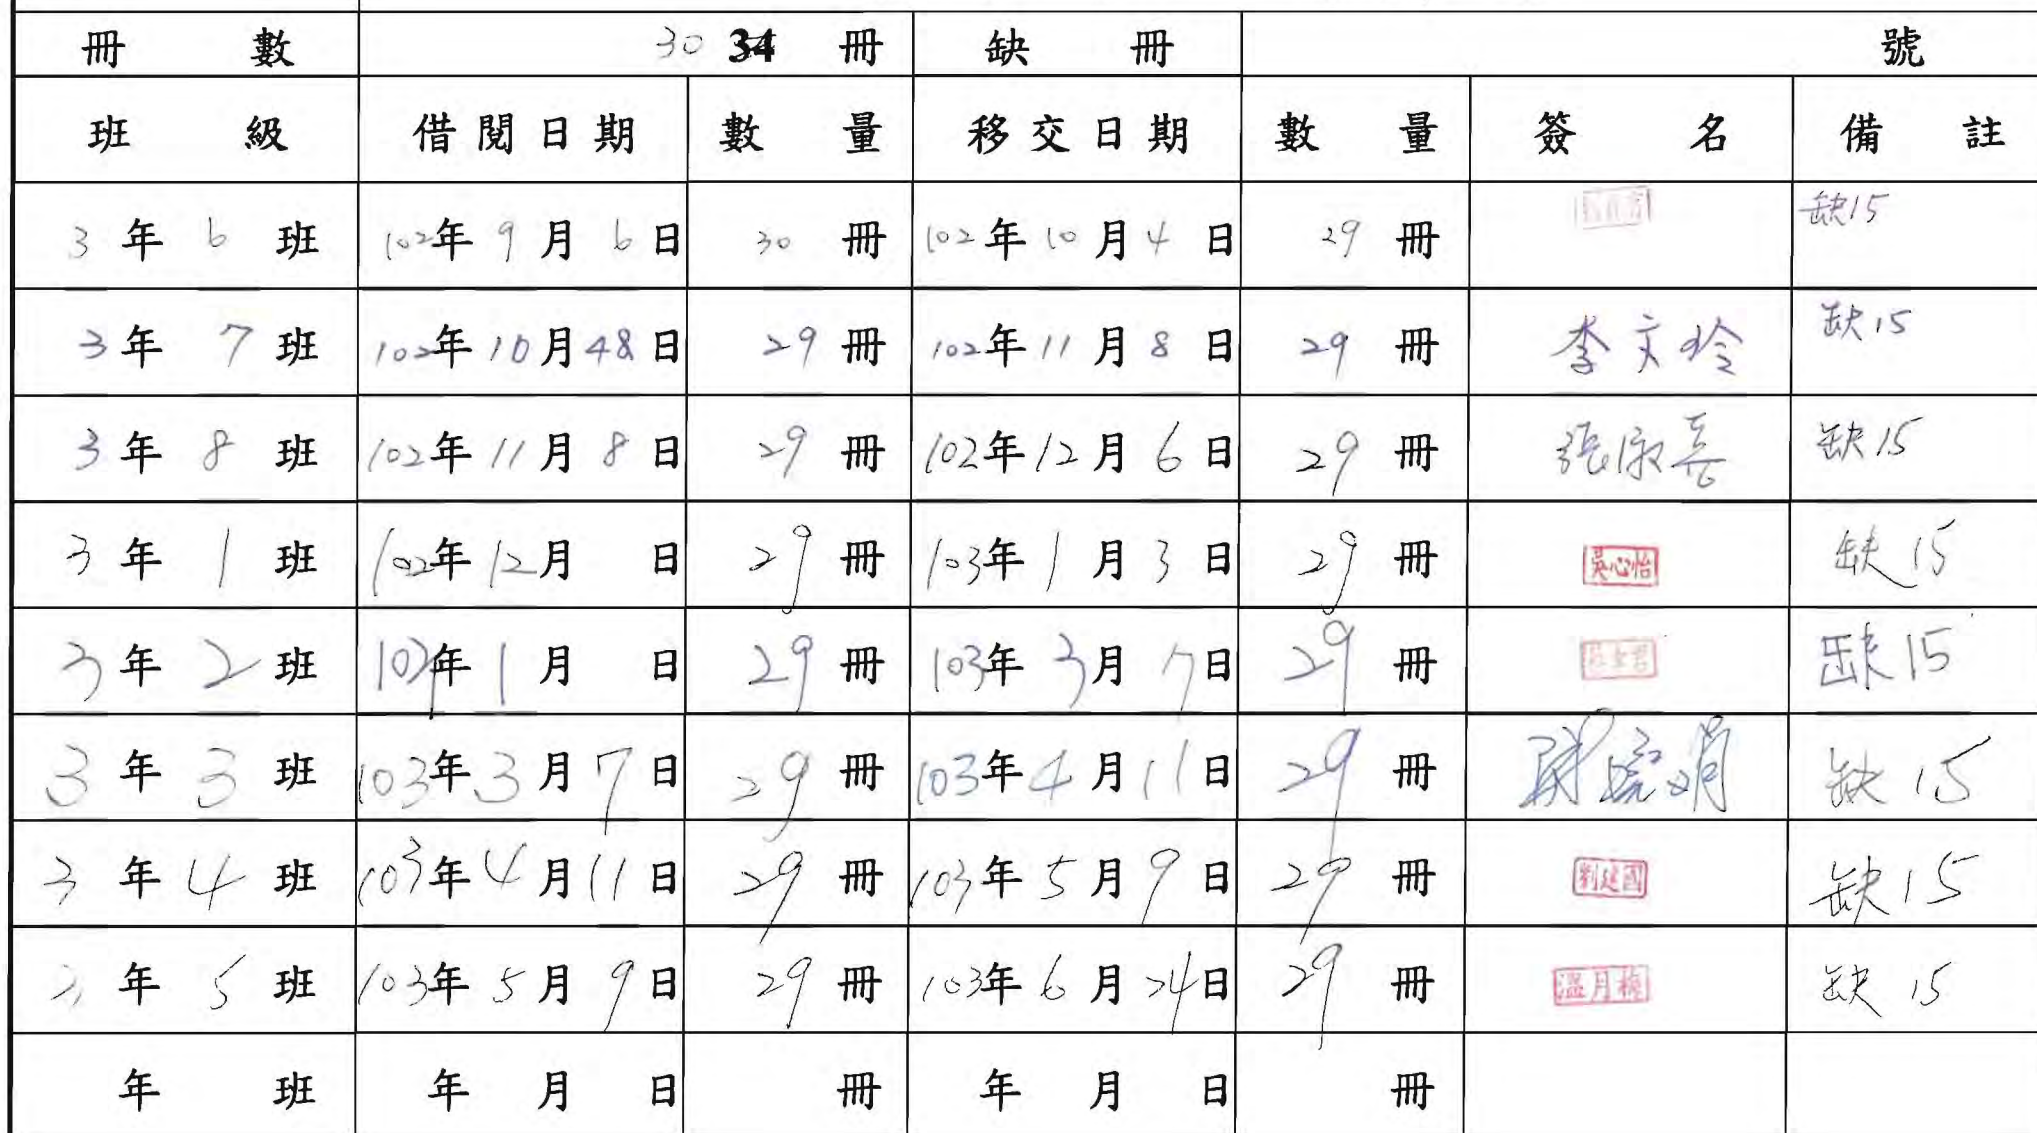 冊數 30 34 冊 缺冊 號
班級 借閱日期 數量 移交日期 數量 簽名 備註
3年6班 102年9月6日 30冊 102年10月4日 29冊 缺15
3年7班 102年10月48日 29冊 102年11月8日 29冊 李文玲 缺15
3年8班 102年11月8日 29冊 102年12月6日 29冊 張淑喜 缺15
3年1班 102年12月 日 29冊 103年1月3日 29冊 吳心怡 缺15
3年2班 年1月 日 29冊 103年3月7日 29冊 缺15
3年3班 103年3月7日 29冊 103年4月11日 29冊 缺15
3年4班 103年4月11日 29冊 103年5月9日 29冊 劉建國 缺15
年5班 103年5月9日 29冊 103年6月24日 29冊 溫月 缺15
年 班 年 月 日 冊 年 月 日 冊